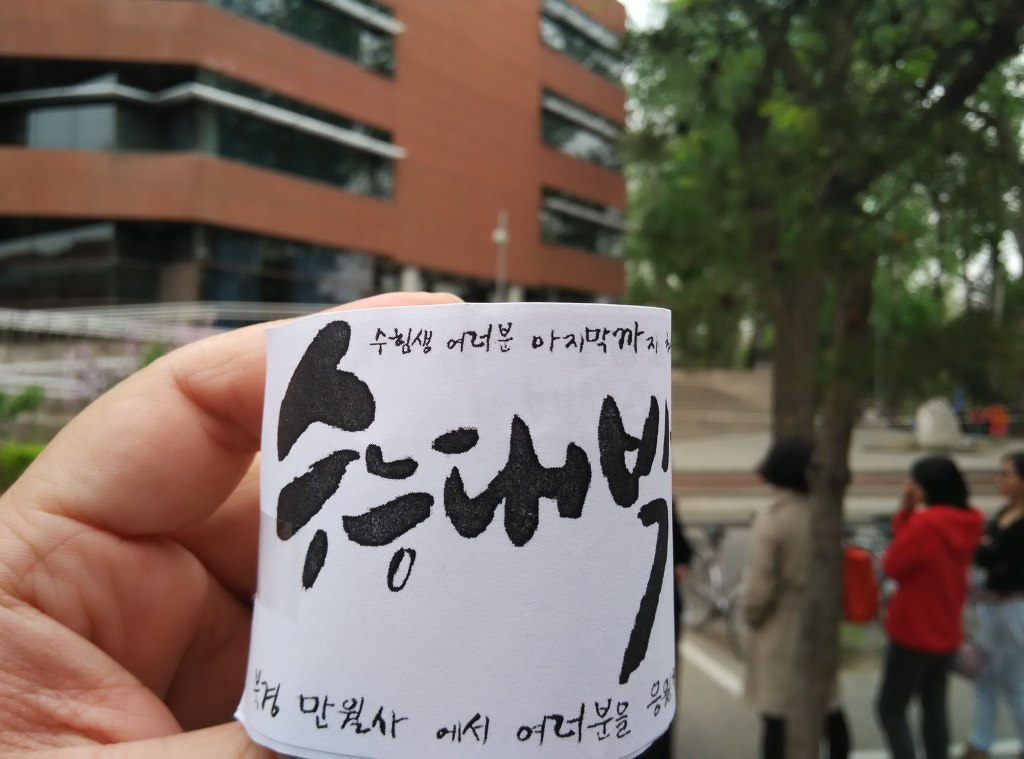 수험생 여러분 마지막까지
수능대박
북경 만월사 에서 여러분을 응원